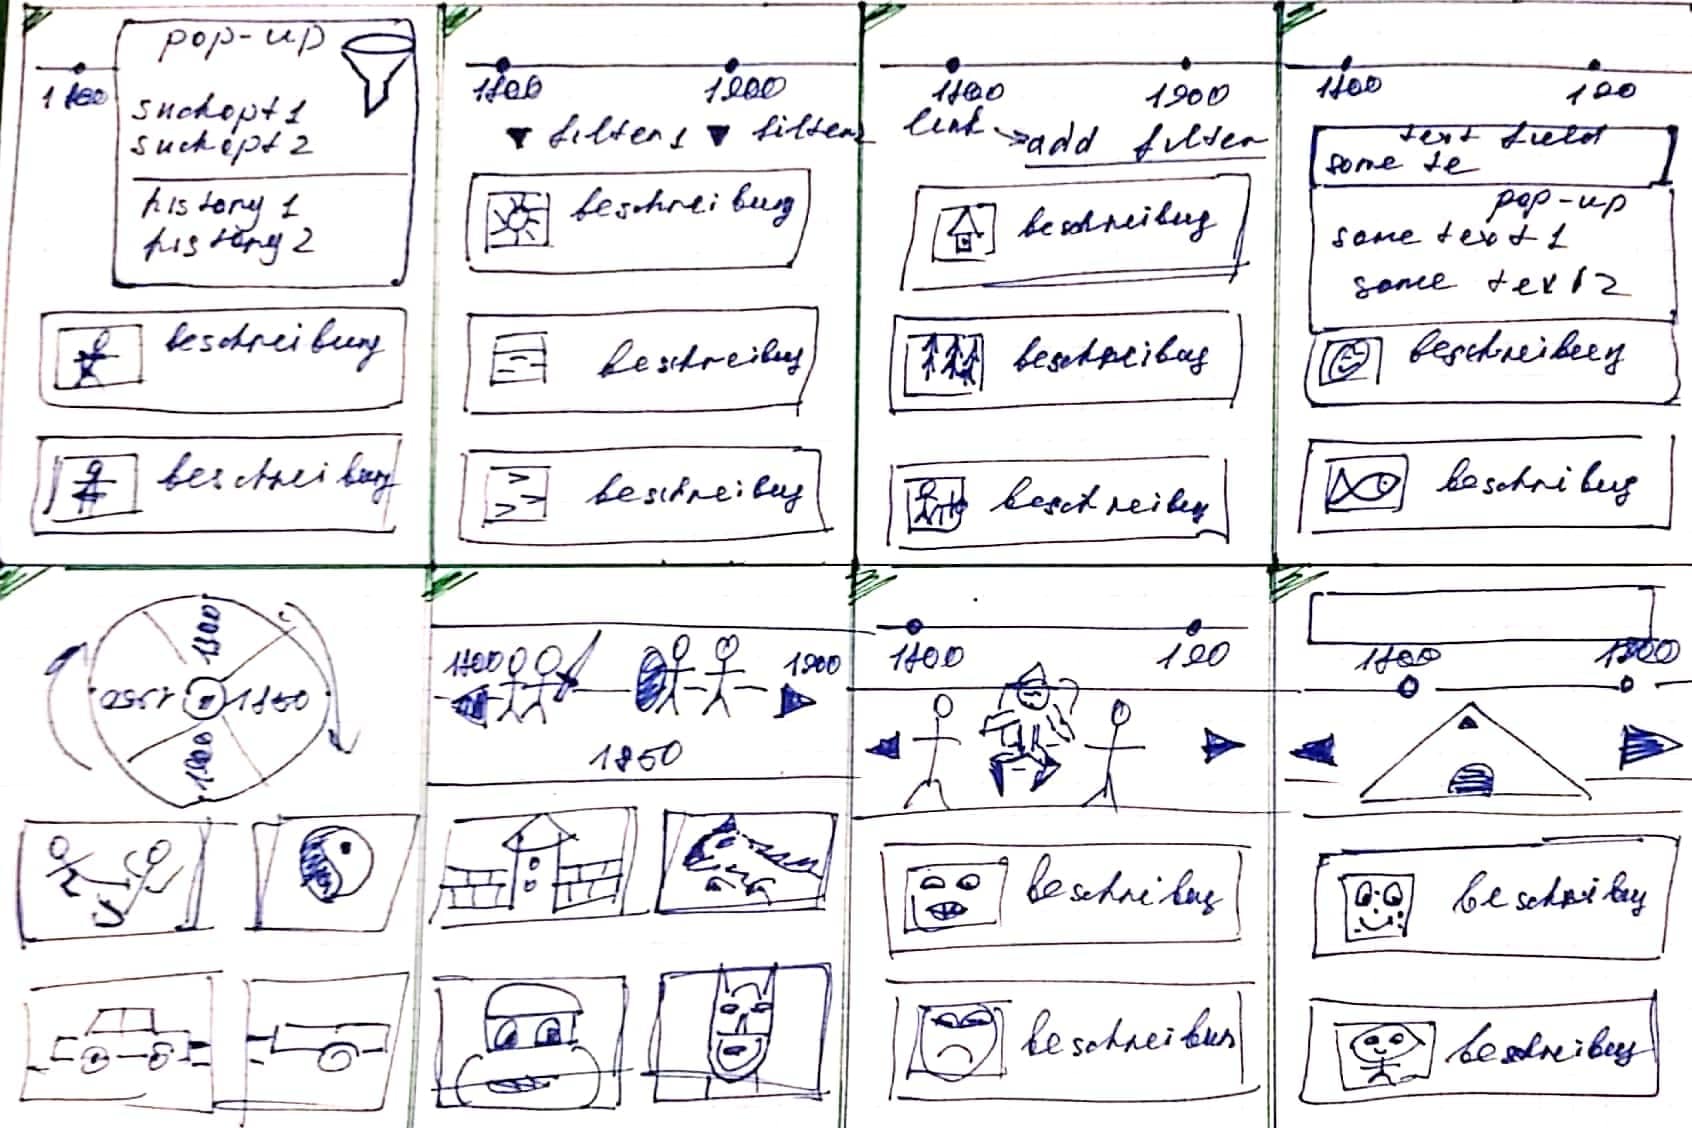 pop-up
suchopt 1
suchopt 2
history 1
history 2
beschreibung
beschreibung
1800
1900
filter 1
filter
beschreibung
beschreibug
beschreibug
1800
1900
link
add filter
beschreibug
beschreibug
beschreibug
1800
text field
some te
pop-up
some text 1
some text 2
beschreibung
beschreibug
1800
1850
1900
1800
1900
1850
1800
beschreibug
beschreibun
1800
1900
beschreibug
beschreibug